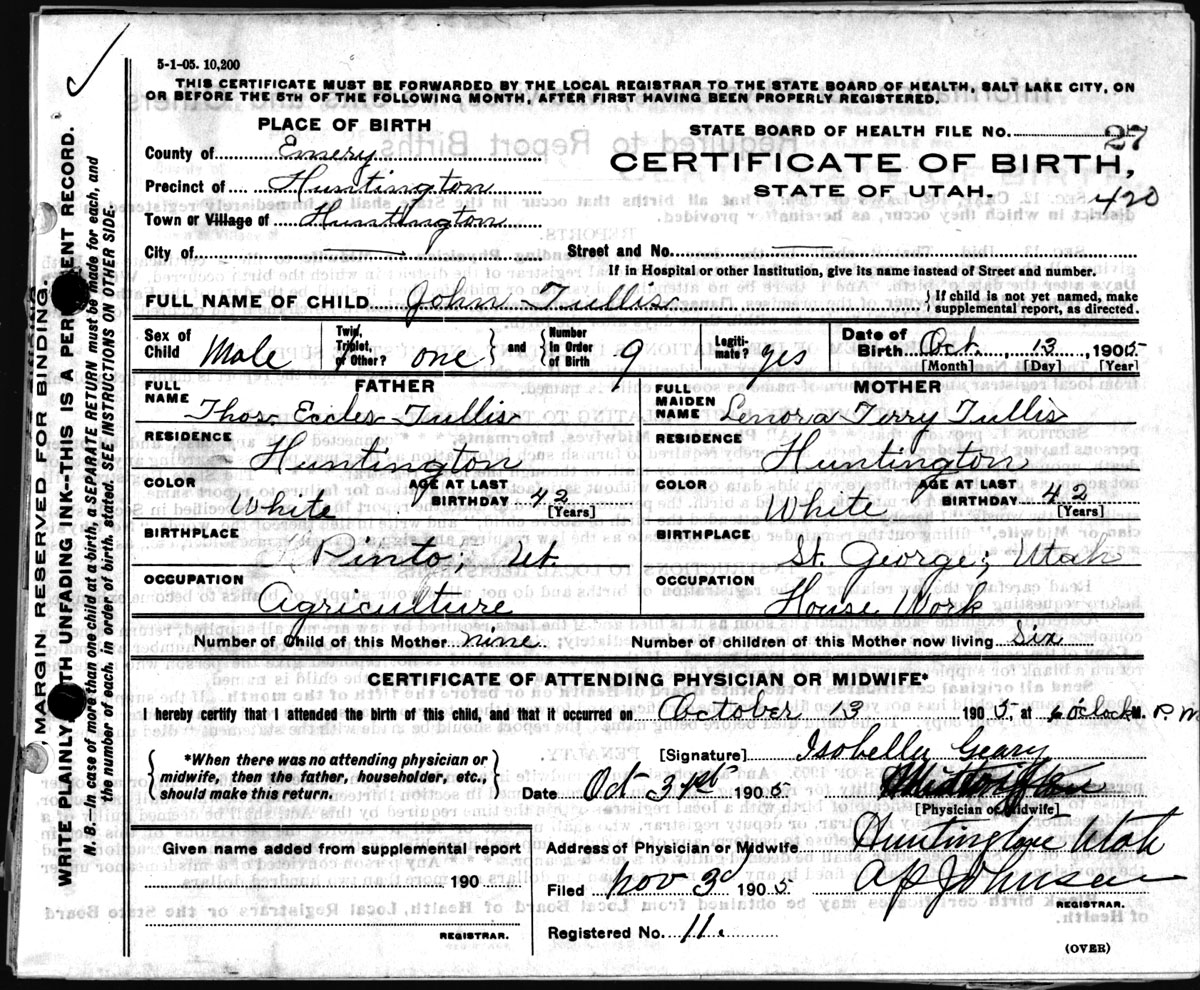 5-1-05. 10,200
THIS CERTIFICATE MUST BE FORWARDED BY THE LOCAL REGISTRAR TO THE STATE BOARD OF HEALTH, SALT LAKE CITY, ON
OR BEFORE THE 5TH OF THE FOLLOWING MONTH, AFTER FIRST HAVING BEEN PROPERLY REGISTERED.
PLACE OF BIRTH
County of Emery
Precinct of Huntington
Town or Village of Huntington
City of
STATE BOARD OF HEALTH FILE NO. 27
CERTIFICATE OF BIRTH,
STATE OF UTAH. 420
Street and No.
If in Hospital or other Institution, give its name instead of Street and number.
FULL NAME OF CHILD John Tullis
If child is not yet named, make
supplemental report, as directed.
Sex of Child Male
Twin, Triplet, or Other? one and Number in Order of Birth 9
Legitimate? yes
Date of Birth Oct. 13, 1905
[Month] [Day] [Year]
FATHER
FULL NAME Thos. Eccles Tullis
RESIDENCE Huntington
COLOR White AGE AT LAST BIRTHDAY 42
[Years]
BIRTHPLACE Pinto, Ut.
OCCUPATION Agriculture
MOTHER
FULL MAIDEN NAME Lenora Terry Tullis
RESIDENCE Huntington
COLOR White AGE AT LAST BIRTHDAY 42
[Years]
BIRTHPLACE St. George; Utah
OCCUPATION House Work
Number of Child of this Mother nine Number of children of this Mother now living Six
CERTIFICATE OF ATTENDING PHYSICIAN OR MIDWIFE*
I hereby certify that I attended the birth of this child, and that it occurred on October 13 1905, at 6 o'clock P. M
*When there was no attending physician or
midwife, then the father, householder, etc.,
should make this return.
[Signature] Isobella Geary
Date Oct. 31st 1905
[Physician or Midwife]
Given name added from supplemental report
190
REGISTRAR.
Address of Physician or Midwife. Huntington Utah
Filed Nov 3d 1905 AP Johnson
REGISTRAR.
Registered No. 11.
(OVER)
MARGIN RESERVED FOR BINDING.
WRITE PLAINLY WITH UNFADING INK--THIS IS A PERMANENT RECORD.
N. B.—In case of more than one child at a birth, a SEPARATE RETURN must be made for each, and
the number of each, in order of birth, stated. SEE INSTRUCTIONS ON OTHER SIDE.